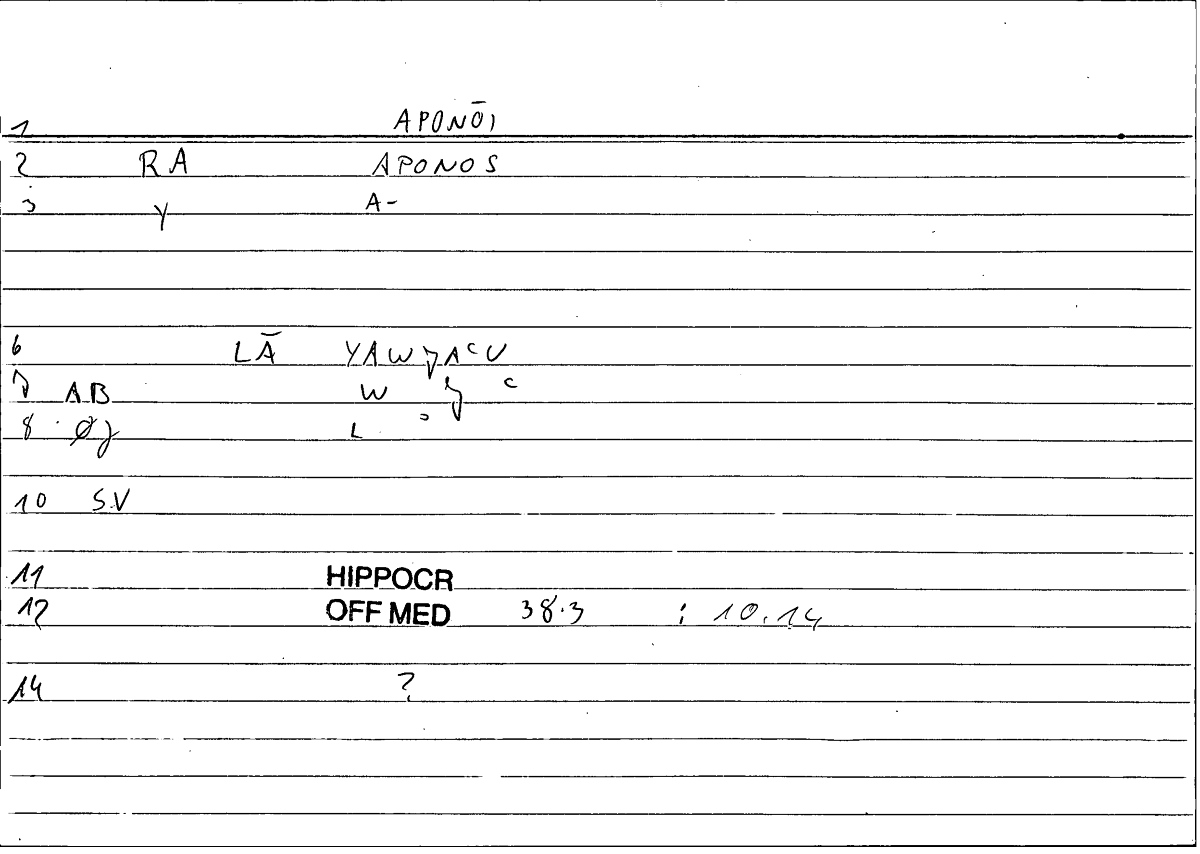 1 APONŌI
2 RA APONOS
3 Y A-
6 LĀ YAWJAᶜU
7 AB W J ᶜ
8 Ø L
10 S.V
11 HIPPOCR
12 OFF MED 38.3 : 10.14
14 ?